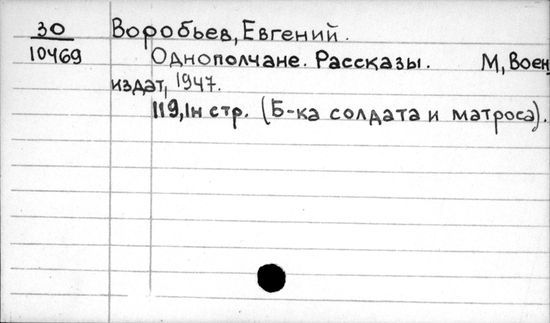 30
10469
Воробьев, Евгений.
Однополчане. Рассказы. М, Воен
издат, 1947.
119, 1н стр. (Б-ка солдата и матроса).